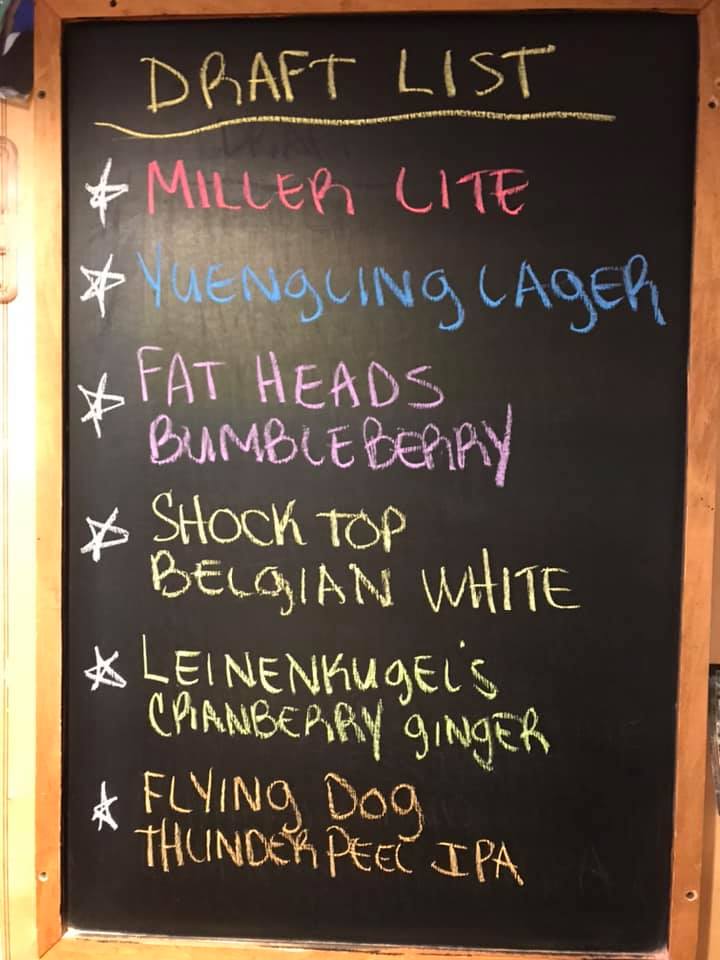 DRAFT LIST
MILLER LITE
YUENGLING LAGER
FAT HEADS
BUMBLEBERRY
SHOCK TOP
BELGIAN WHITE
LEINENKUGEL'S
CRANBERRY GINGER
FLYING DOG
THUNDERPEEL IPA